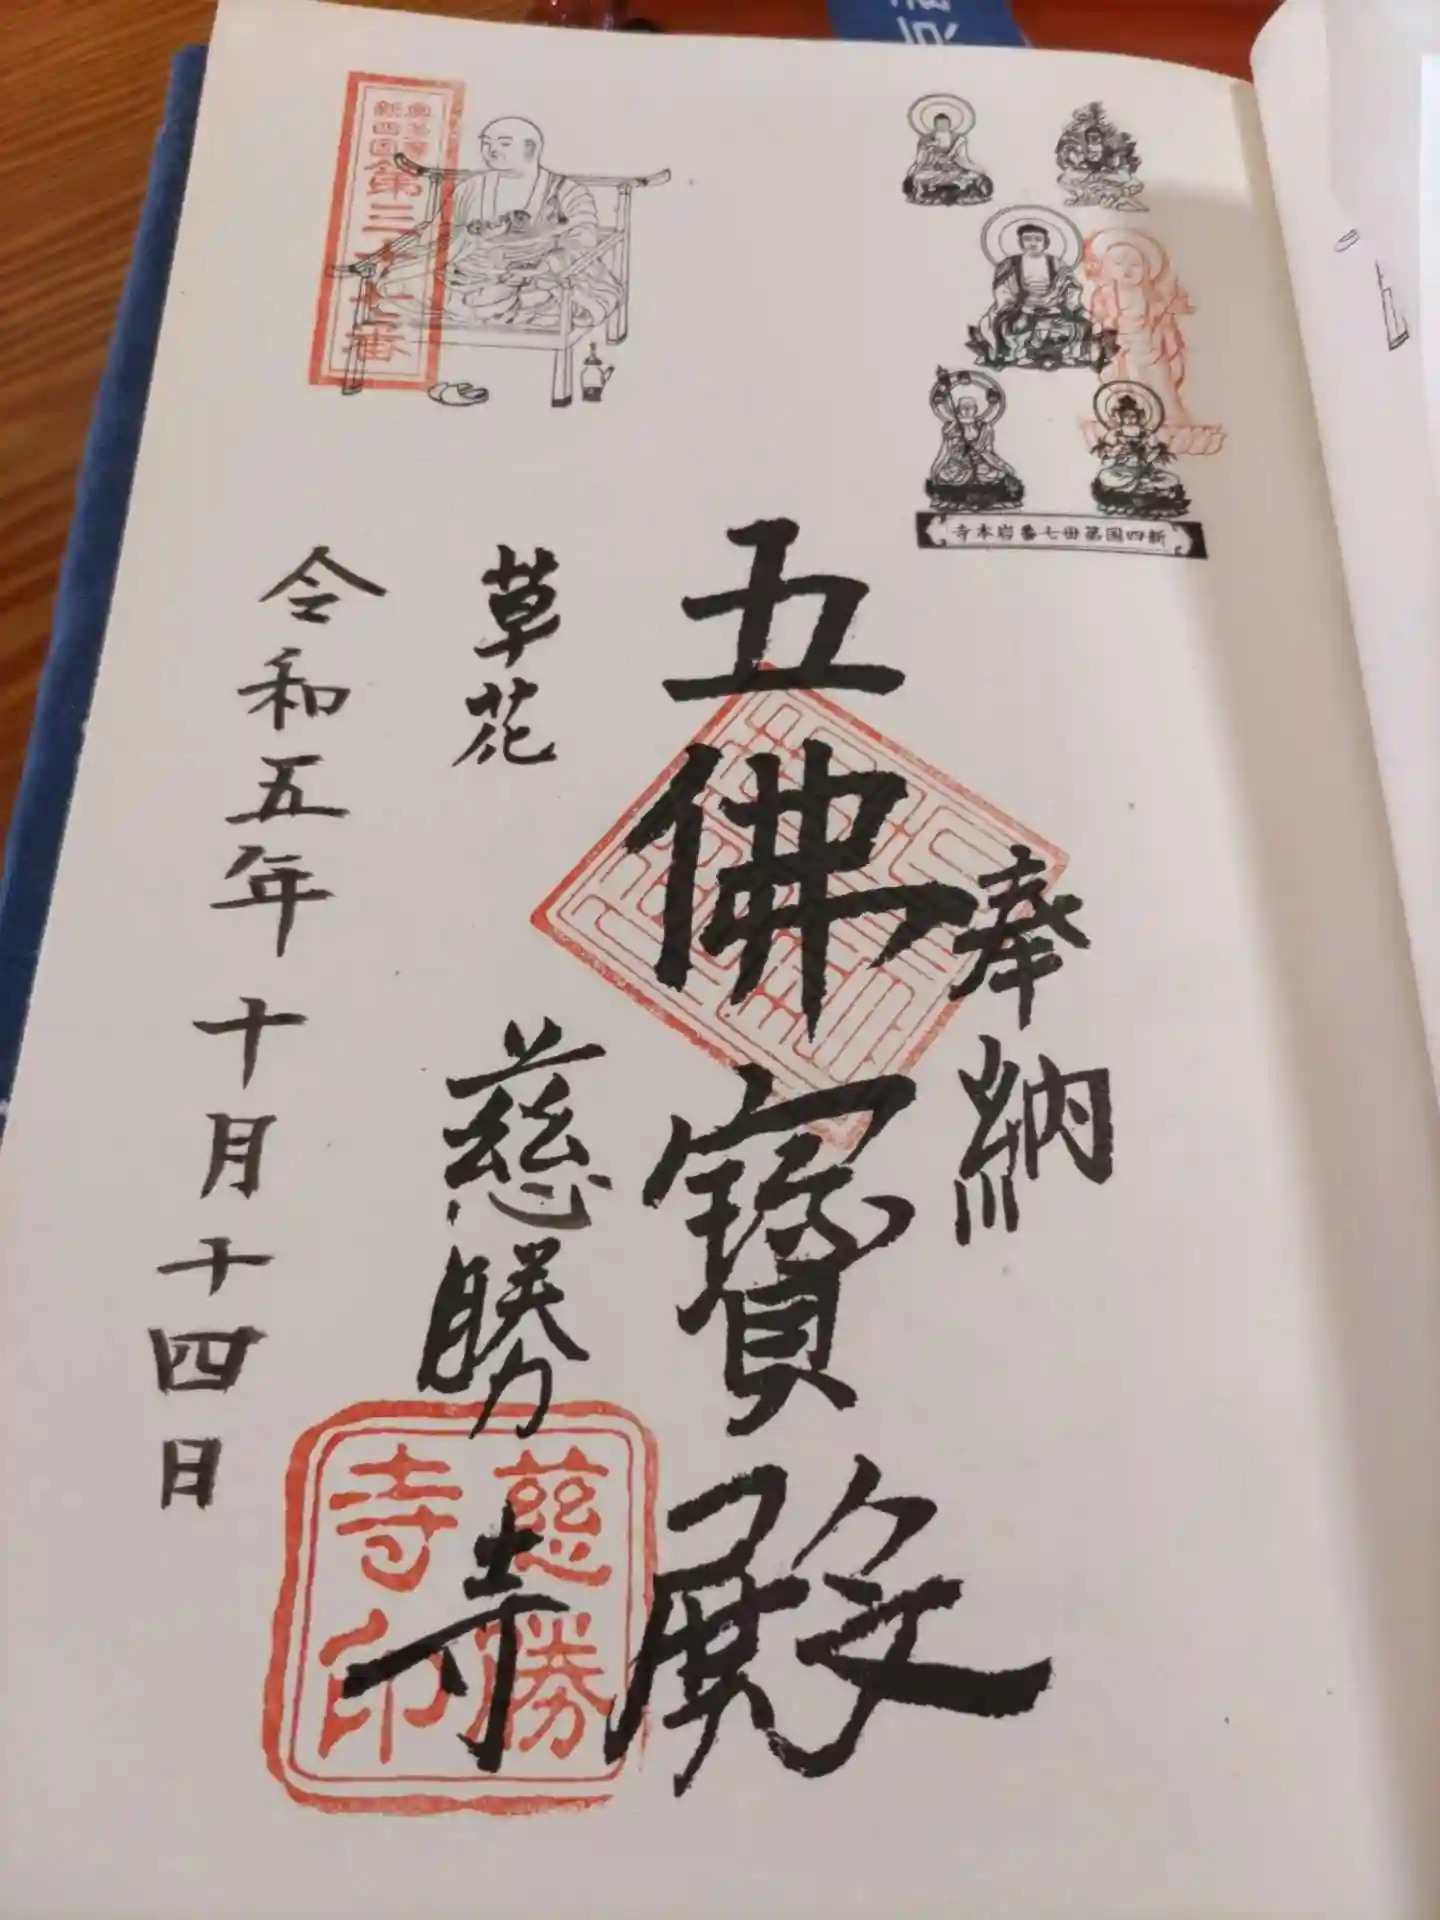 新四国第卅七番岩本寺
奉納
五佛寶殿
草花 慈勝寺
令和五年十月十四日
第三十七番
慈勝
寺印